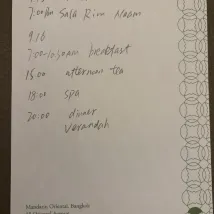 7:00pm Sala Rim Naam
9/6
7:00-10:30am breakfast
15.00 afternoon tea
18.00 spa
20.00 dinner
Verandah
Mandarin Oriental, Bangkok